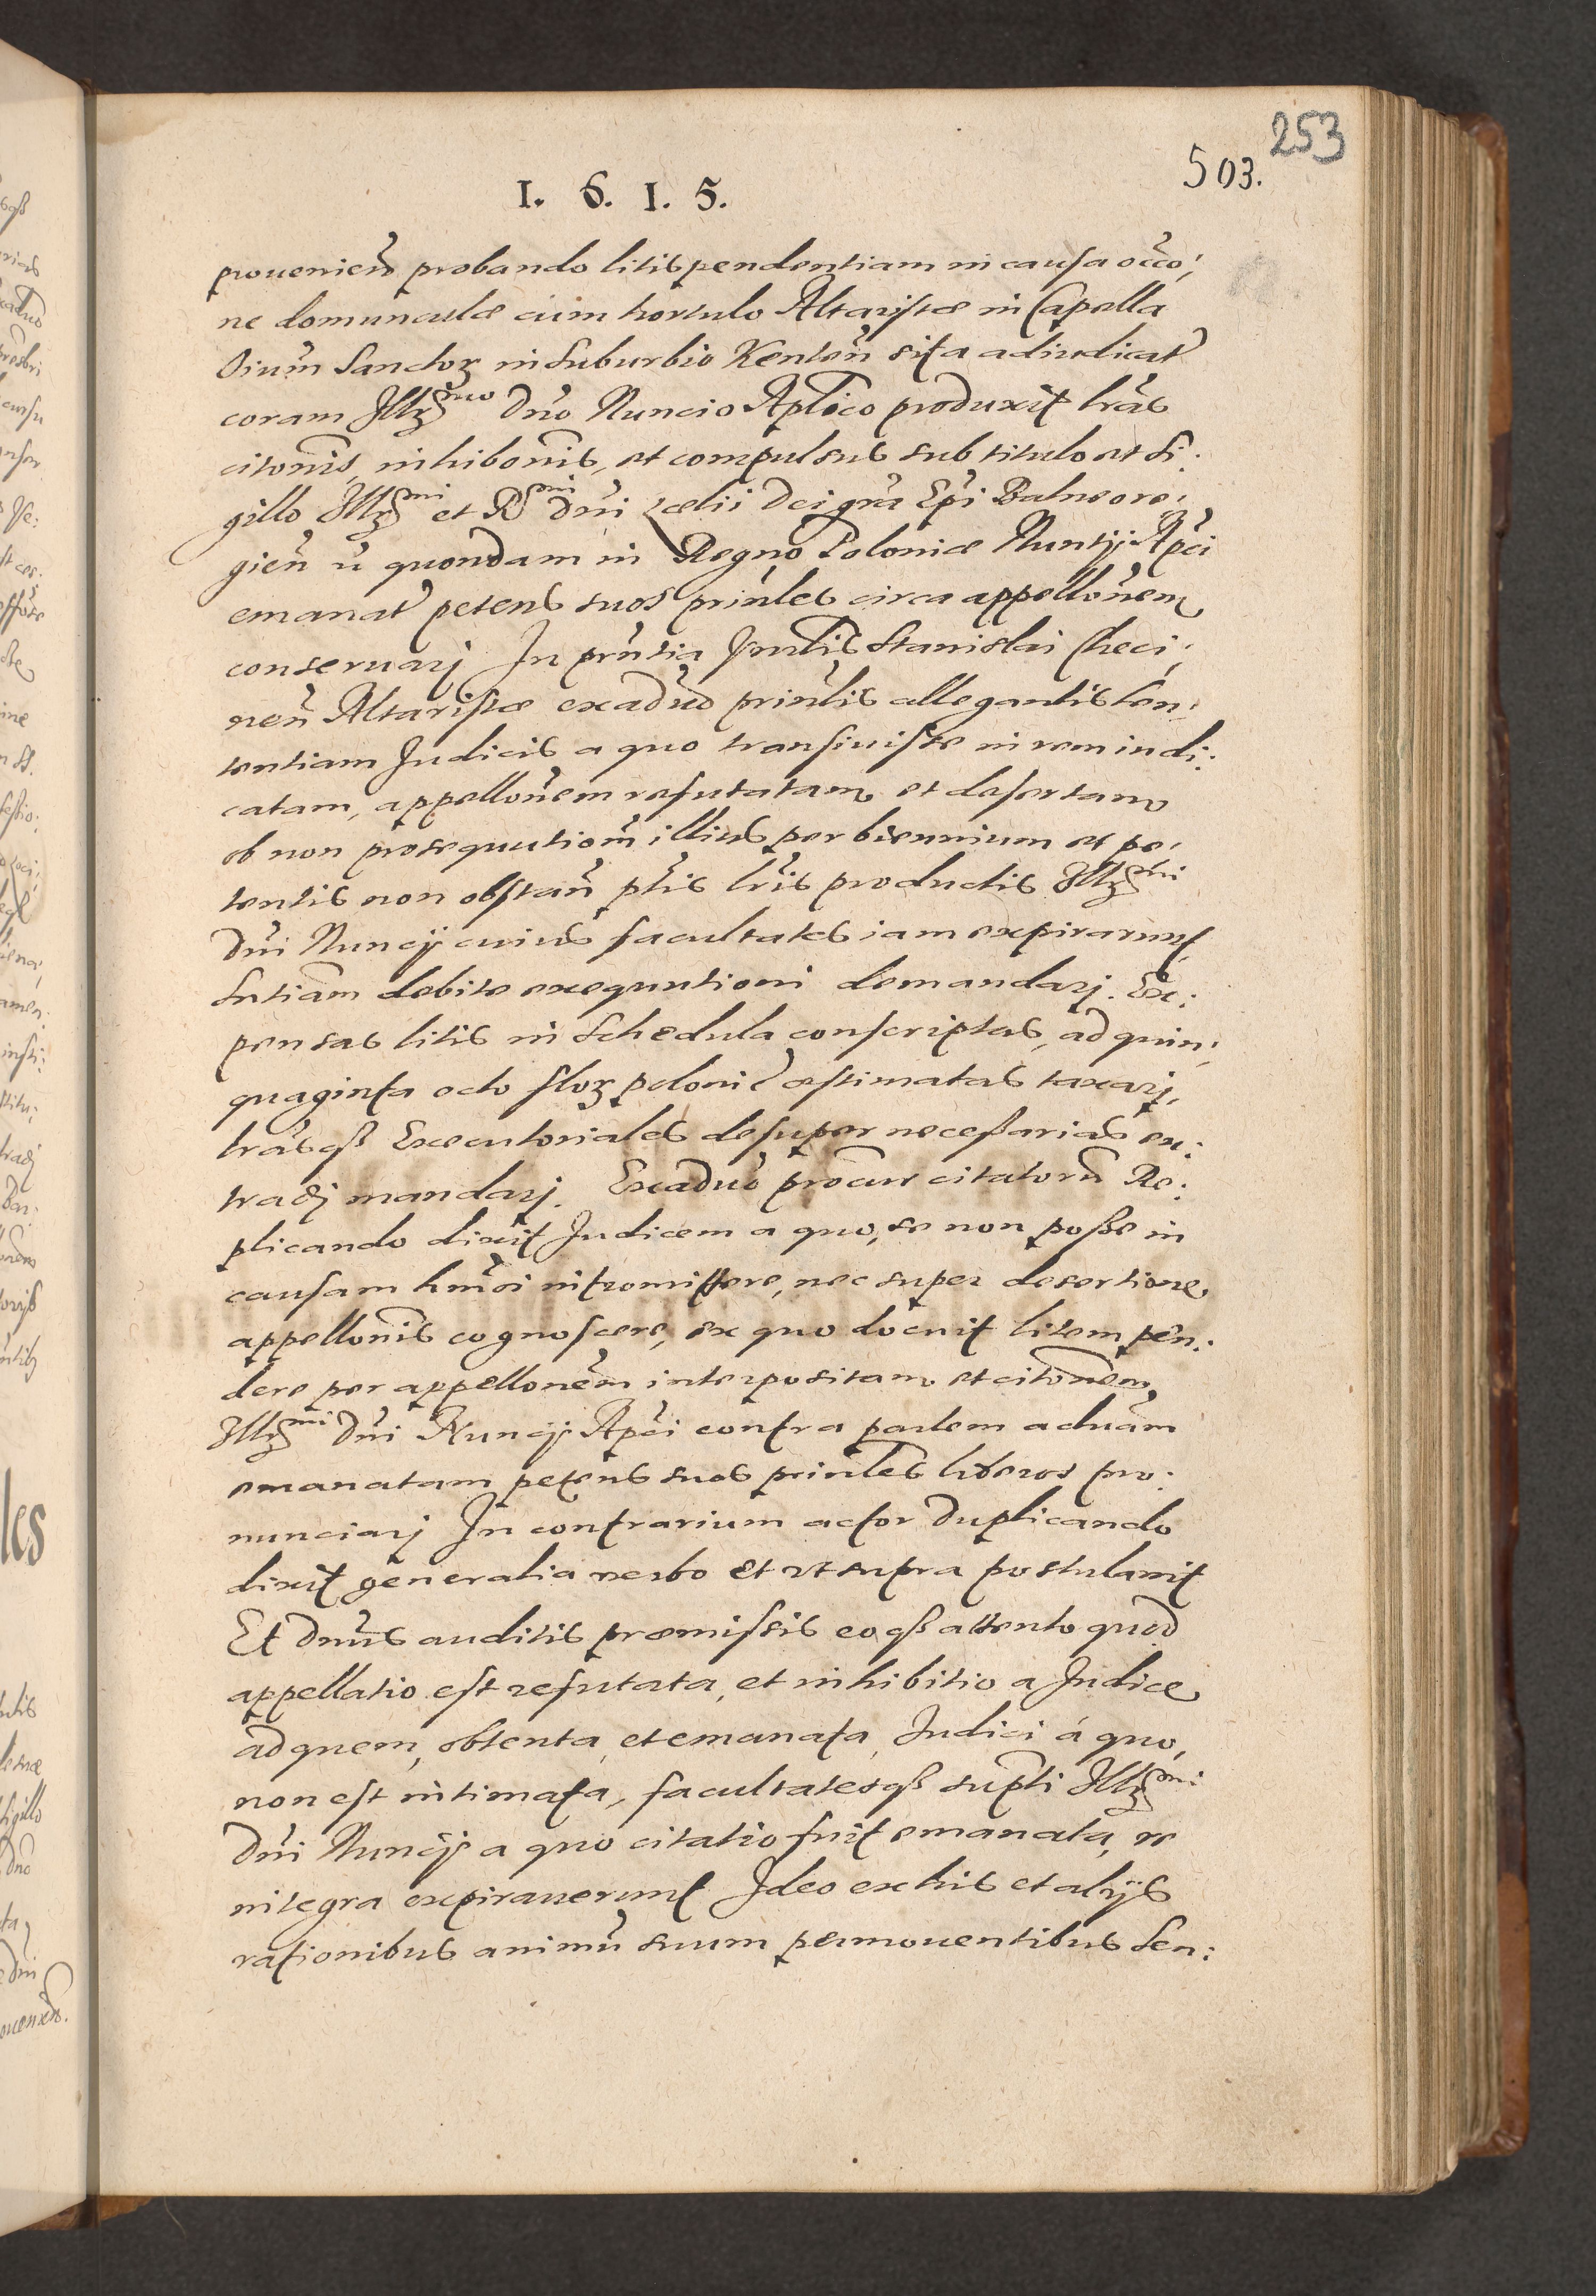 253
503.
I. 6. I. 5.
prouenien̄ probando litis pendentiam in causa occ̄o;
ne domunculæ cum hortulo Altaristæ in Capella
Oium̄ Sanctoꝝ in suburbio Kenten̄ sita adiudicat̉
coram Illꝫmo Dn̄o Nuncio Aplico produxit lrās
citōnis, inhibōnis, et compulsus sub titulo et si:
gillo Illꝫmi et Rmi dn̄i Lælii Dei grā Ep̄i Balneore;
gien̄ ū quondam in Regno Poloniæ Nuntij Ap̄ci
emanat̉ petens suos prin̄les circa appellōnem
conseruarj In prn̄tia Stanislai Checi;
nen̄ Altaristæ ex adūo prin̄lis allegantis sen;
tentiam Judicis a quo transiuisse in rem iudi:
catam, appellōnem refutatam et desertam
ob non prosequutiōm illius per biennium et pe;
tentis non obstan̄ pt̄is lrīs productis Illꝫmi
dn̄i Nuncij cuius facultates iam expirarunt,
sn̄tiam debite exequutioni demandarj. Ex:
pensas litis in schedula conscriptas, ad quin;
quaginta octo floꝝ polonỉ æstimatas taxarj,
lrāsqß Executoriales desuper necessarias ex:
tradj mandarj. Ex aduō procur citatorū Re:
plicando dixit Judicem a quo, se non posse in
causam hmōi intromittere, nec super desertione
appellōnis cognoscere, ex quo docuit litem pen:
dere per appellōnem interpositam et citōnem
Illꝫmi Dn̄i Nuncij Ap̄ci contra partem actuām
emanatam petens suos prin̄les liberos pro:
nunciarj In contrarium actor Duplicando
dixit generalia verbo et vt supra postulauit
Et Dn̄us auditis præmissis eoqß attento quod
appellatio est refutata, et inhibitio a Judice
ad quem, obtenta, et emanata, Judici á quo,
non est intimata, facultatesqß supt̄i Illꝫmi
Dn̄i Nuncij a quo citatio fuit emanata, re
integra expirauerunt Ideo ex his et alijs
rationibus animū suum permouentibus sen: